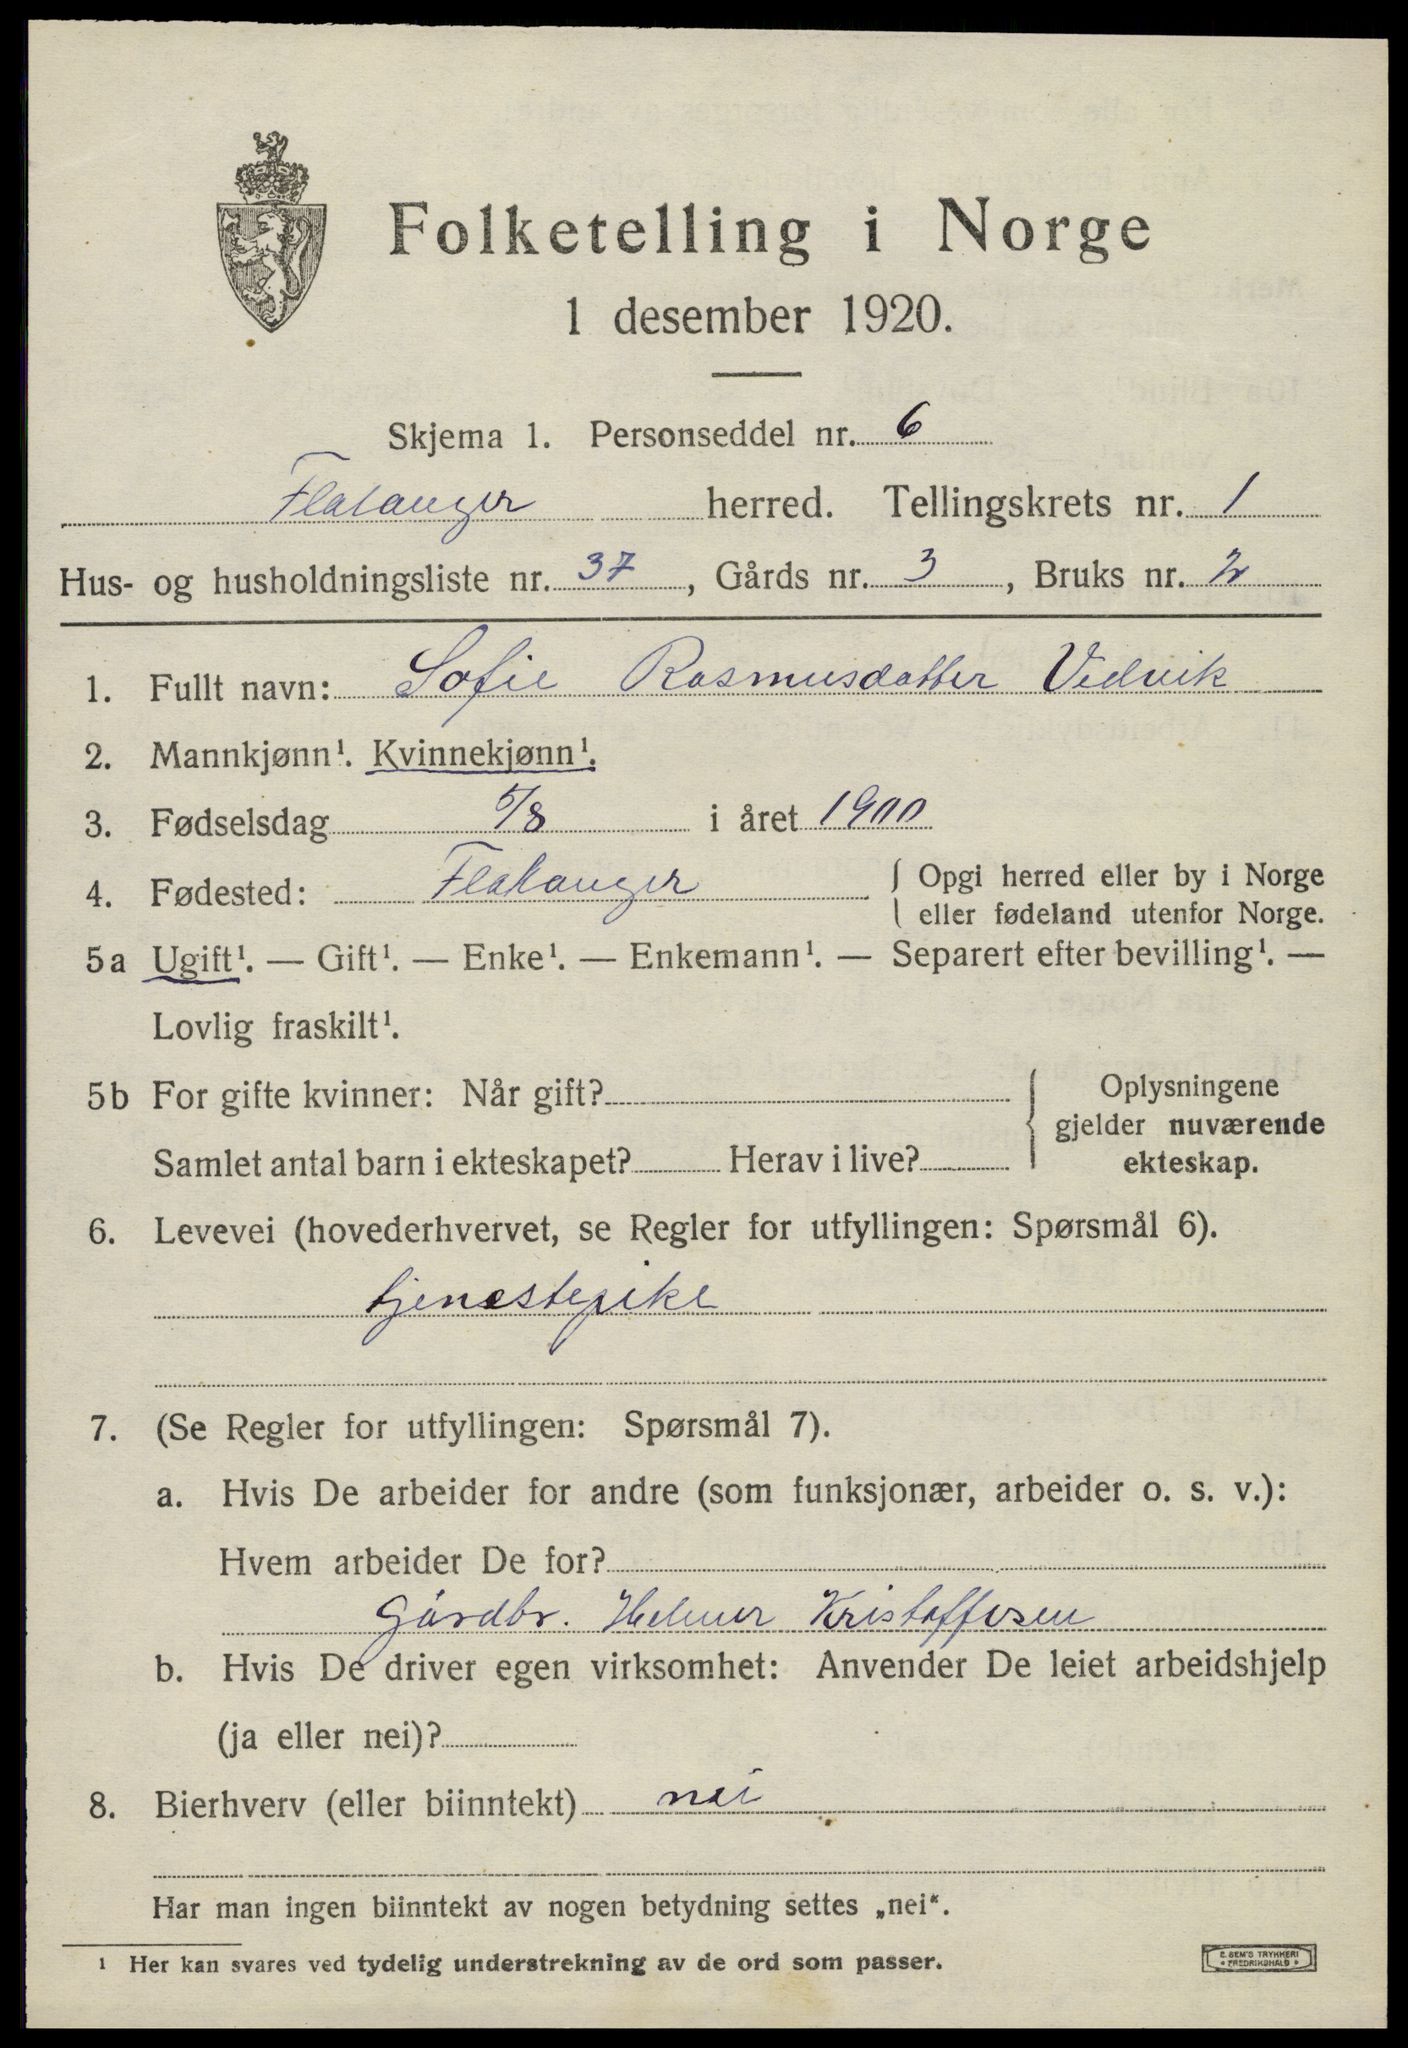 Folketelling i Norge
1 desember 1920.
Skjema 1. Personseddel nr. 6
Flatanger herred. Tellingskrets nr. 1
Hus- og husholdningsliste nr. 37, Gårds nr. 3, Bruks nr. 2
1. Fullt navn: Sofie Rasmusdatter Vedvik
2. Mannkjønn¹. Kvinnekjønn¹.
3. Fødselsdag 5/8 i året 1900
4. Fødested: Flatanger { Opgi herred eller by i Norge
eller fødeland utenfor Norge.
5a Ugift¹. — Gift¹. — Enke¹. — Enkemann¹. — Separert efter bevilling¹. —
Lovlig fraskilt¹.
5b For gifte kvinner: Når gift? { Oplysningene
gjelder nuværende
Samlet antal barn i ekteskapet? Herav i live? ekteskap.
6. Levevei (hovederhvervet, se Regler for utfyllingen: Spørsmål 6).
tjenestepike
7. (Se Regler for utfyllingen: Spørsmål 7).
a. Hvis De arbeider for andre (som funksjonær, arbeider o. s. v.):
Hvem arbeider De for?
Gårdbr. Helmer Kristoffersen
b. Hvis De driver egen virksomhet: Anvender De leiet arbeidshjelp
(ja eller nei)?
8. Bierhverv (eller biinntekt) nei
Har man ingen biinntekt av nogen betydning settes „nei“.
¹ Her kan svares ved tydelig understrekning av de ord som passer.
E. SEM'S TRYKKERI
• FREDRIKSHALD •